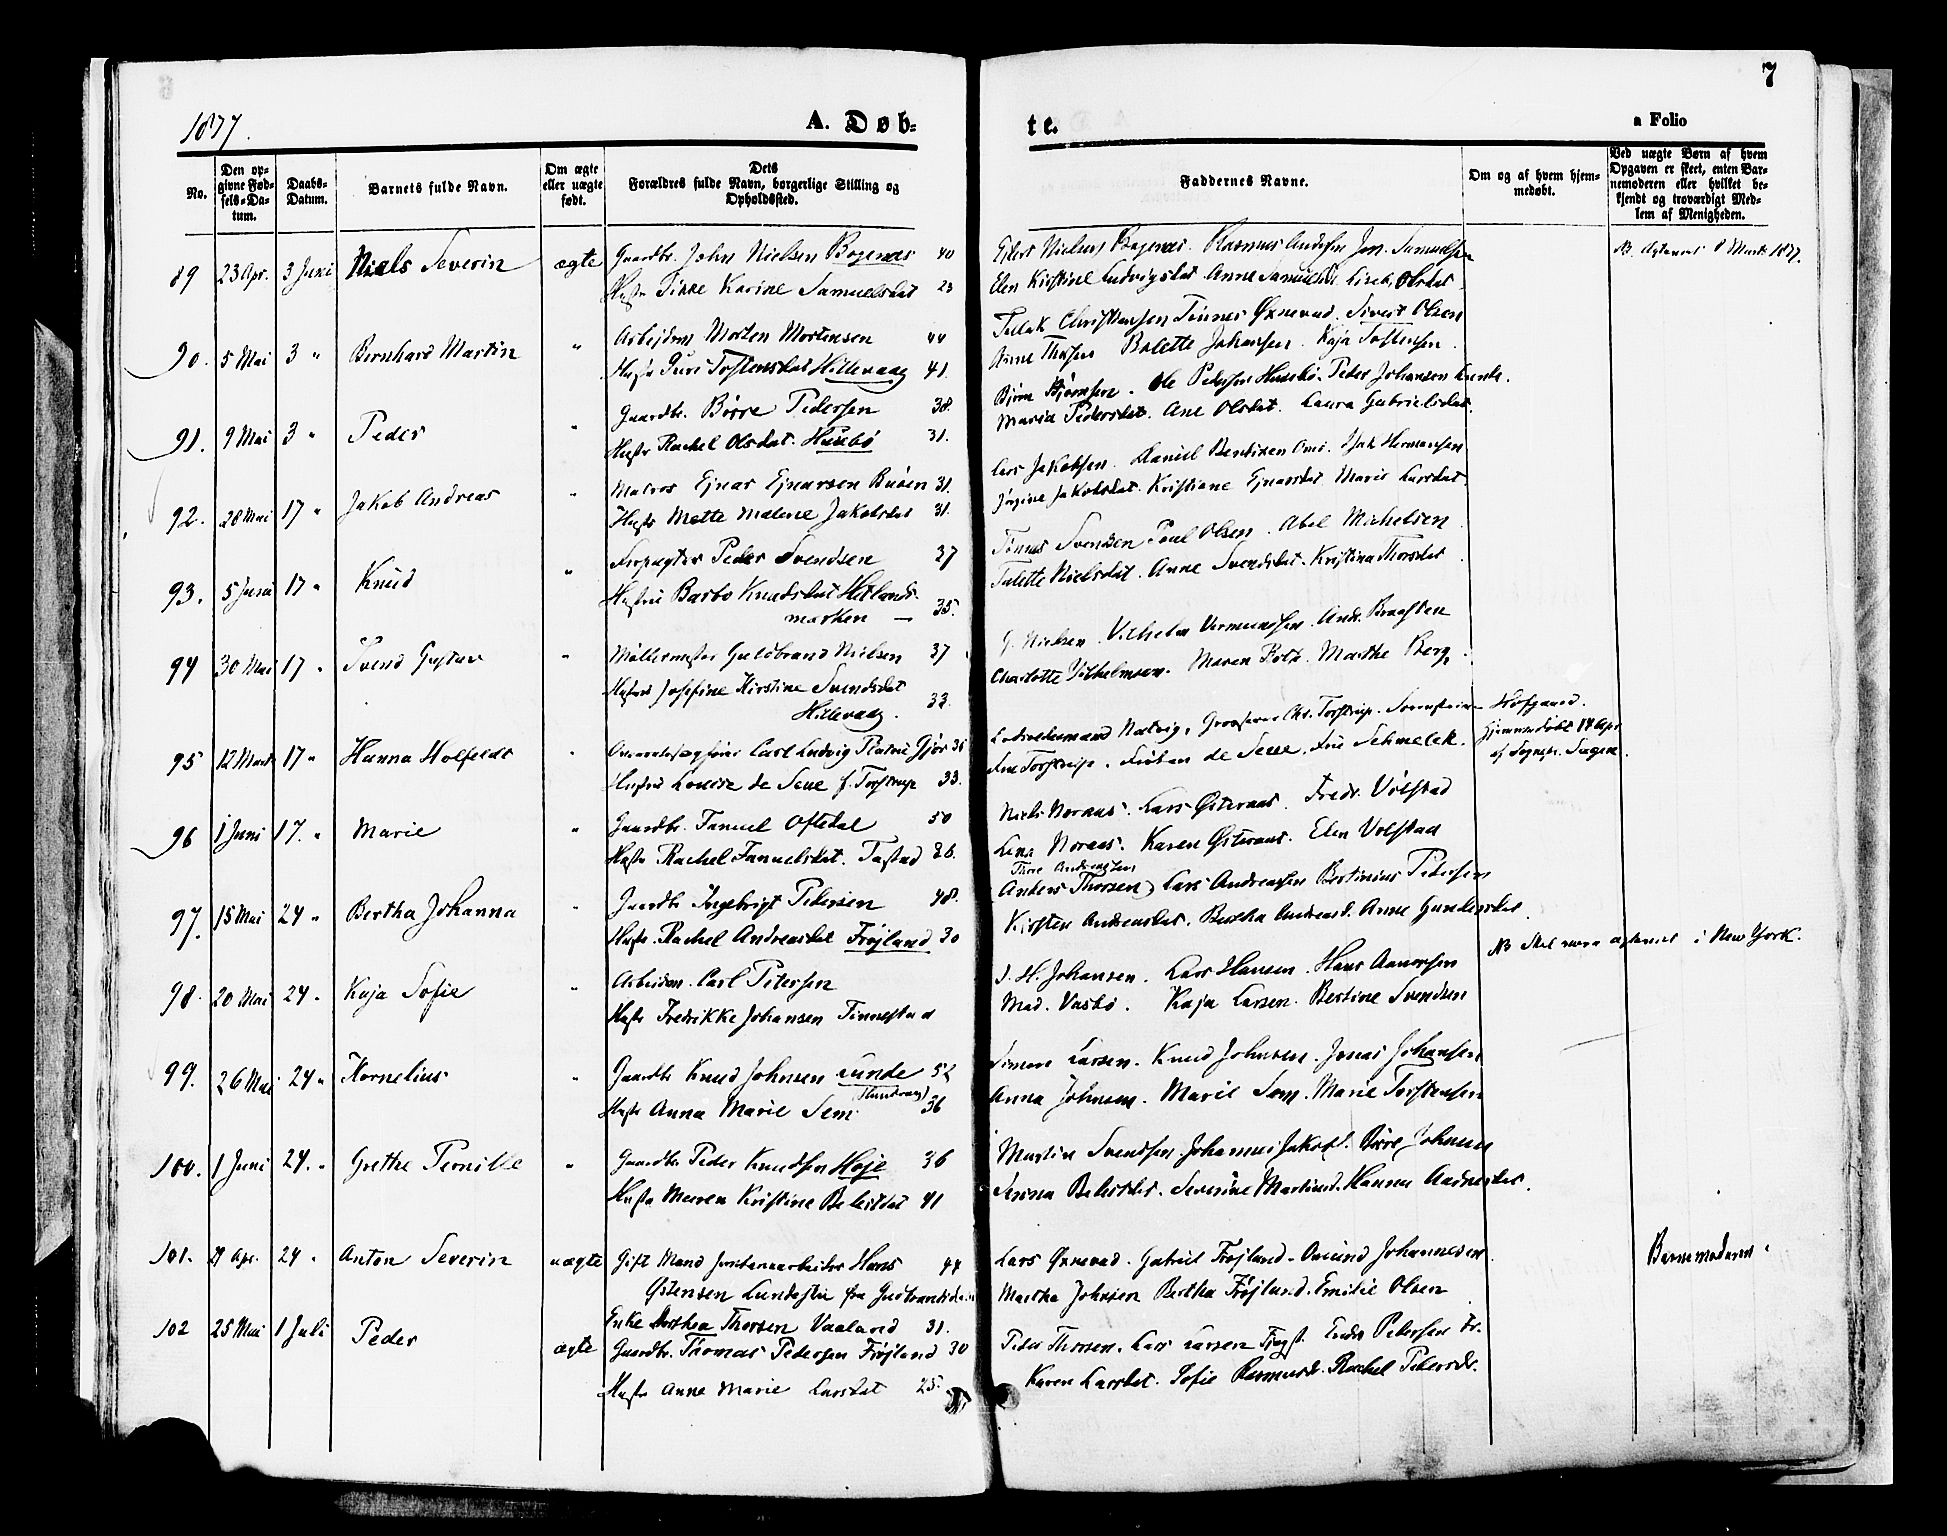 7
1877.
A. Døb-
te.
a Folio
No.
Den op-
givne Fød-
sels-Da-
tum.
Daabs-
Datum.
Barnets fulde Navn.
Om ægte
eller uægte
født.
Dets
Forældres fulde Navn, borgerlige Stilling og
Opholdssted.
Faddernes Navne.
Om og af hvem hjem-
medøbt.
Ved uægte Børn af hvem
Opgaven er skeet, enten Bar-
nemoderen eller hvilket be-
kjendt og troværdigt Med-
lem af Menigheden.
89 23 Apr. 3 Juni Niels Severin ægte Gaardbr. John Nielsen Bogenæs 40
Hustr. Karine Samuelsdat 23
Nielsen Bogenæs. Rasmus Jon. Samuelsen
Elen Kristine Ludvigsdat Anne Samuelsd. Olsdat
8 Marts 1877.
90. 5 Mai 3 " Bernhard Martin " Arbeidsm Morten Mortensen 44
Hustr Guri Tostensdat Hillevaag 41.
Christiansen Tønnes Øxnevad. Sivert Olsen
Bolette Johansen. Kaja Tostensen.
91. 9 Mai 3 " Peder " Gaardbr. Børre Pedersen 38.
Hustr Rachel Olsdat. Husebø 31.
Bjørn Bjørnsen. Ole Pedersen Husebø. Peder Johansen Lunde.
Maria Pedersdat. Ane Olsdat. Laura Gabrielsdat.
92. 28 Mai 17 " Jakob Andreas " Matros Ejnar Ejnarsen Buøen 31.
Hustr Mette Malene Jakobsdat 31.
Lars Jakobsen. Daniel Bentsen Hermansen
Jakobsdat. Kristiane Ejnarsdat Marie Larsdat
93. 5 Juni 17 " Knud " Peder Svendsen 37
Hustru Barbo Knudsdat Hetlands-
marken — 35.
Tønnes Svendsen Poul Olsen. Abel Michelsen
Talette Nielsdat. Anne Svendsdat. Kristina Thorsdat
94 30 Mai 17 " Svend Gustav " Møllermester Guldbrand Nielsen 37
Hustru Josefine Kirstine Svendsdat
Hillevaag. 33.
G. Nielsen. Vilhelm Vermundsen. Andr. Braasten
Charlotte Vilhelmsen. Maren Marthe Berg.
95 12 Marts 17 " Hanna Holfeldt " Carl Ludvig Gjør 35
Hustru Louise de Seue f. Torstrup 33.
Natvig. Chr. Torstrup.
Fru Torstrup. Frøken de Seue. Fru Schmelck.
Hjemmedøbt 14 Apr
af Sognepr.
96 1 Juni 17. " Marie " Gaardbr. Tanuel Oftedal 50
Hustr Rachel Tanuelsdat. Tastad 36.
Niels Noraas. Lars Østeraas. Fredr. Vølstad
Lena Noraas. Karen Østeraas. Elen Volstad
97. 15 Mai 24 " Bertha Johanna " Gaardbr Ingebrigt Pedersen 48.
Hustr. Rachel Andreasdat Frøjland 30
Andreassen
Anders Thorsen) Lars Andreassen Bertinius Pedersen
Kirsten Andreasdat. Bertha Andreasd. Anne Gundersdat.
98. 20 Mai 24 " Kaja Sofie " Arbeidsm. Carl Petersen
Hustr Fredrikke Johansen Tinnestad
J. H. Johansen. Lars Hansen. Hans Aanensen
Mad. Vasbø. Kaja Larsen. Bertine Svendsen
NB Skal være i New York.
99. 26 Mai 24 " Kornelius " Gaardbr Knud Johnsen Lunde 52
Hustr Anna Marie Sem 36
Larsen. Knud Johnsen. Jonas Johansen
Anna Johnsen. Marie Sem. Marie Torstensen
100. 1 Juni 24. " Grethe Pernille " Gaardbr Peder Knudsen Høje 36
Hustr Maren Kristine 41
Martin Svendsen. Johannes Jakobs.
Severine
101. 29 Apr. 24 " Anton Severin uægte Gift Mand Jernbanearbeider Hans 44
Østensen fra Gudbrandsdalen
Enke Dorthea Thorsen Vaaland 31.
Lars Øxnevad. Gabriel Frøjland. Omund Johannesen
Martha Johnsen Bertha Frøjland. Emilie Olsen
Barnemoderen
102 25 Mai 1 Juli Peder ægte Gaardbr. Thomas Pedersen Frøjland 30
Hustr Anne Marie Larsdat 25.
Peder Thorsen. Lars Larsen Endre Pedersen Fr.
Karen Larsdat. Sofie Rasmusd. Rachel Pedersdr.